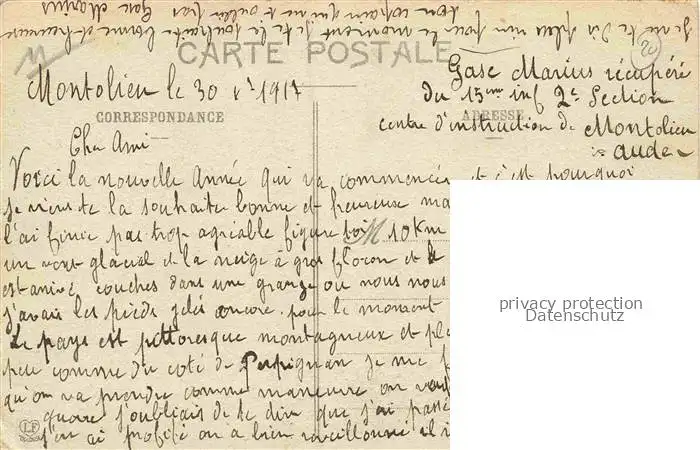 Je ne te dis plus rien pour le moment je te la souhaite bonne et heureuse
ton copain qui ne t'oublie pas
Gasc Marius
CARTE POSTALE
Montolieu le 30 1917
Gasc Marius récupéré
du 15ème inf 2e Section
CORRESPONDANCE
ADRESSE
centre d'instruction de Montolieu
Aude
Cher Ami
Voici la nouvelle Année qui va commencer et c'est pourquoi
je viens te la souhaite bonne et heureuse
l'ai finie pas trop agréable figure toi 10 Km
un vent glacial de la neige à gros flocon et
est arrivé couches dans une grange ou nous nous
j'avais les pieds gelés encore. pour le moment
Le pays est pittoresque montagneux et
peu comme du coté de Perpignan je me
qu'on va prendre comme manoeuvre on
j'oubliais de te dire que j'ai passé
j'en ai profité on a bien reveillonné il
LF
privacy protection
Datenschutz